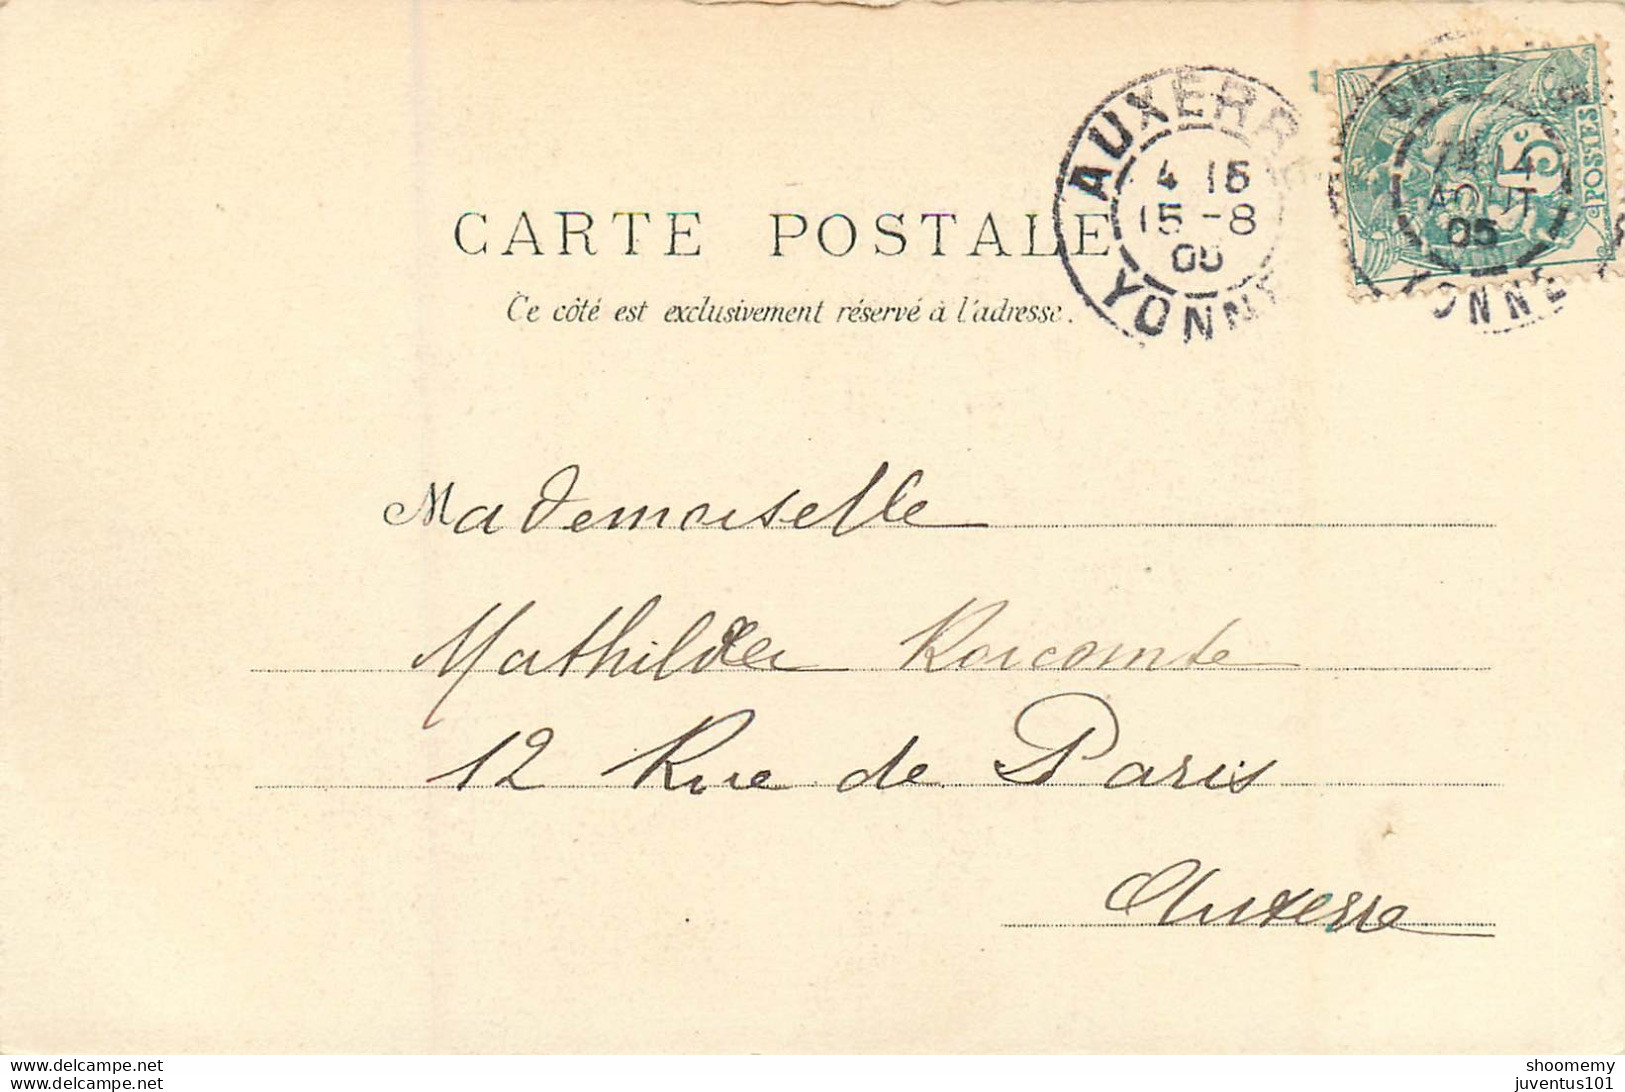 CARTE POSTALE
Ce côté est exclusivement réservé à l'adresse.
AUXERRE
4 15
15 -8
05
YONNE
5c
POSTES
14
AOUT
05
YONNE
Mademoiselle
Mathilde
12 Rue de Paris
Auxerre
www.delcampe.net
www.delcampe.net
shoomemy
juventus101